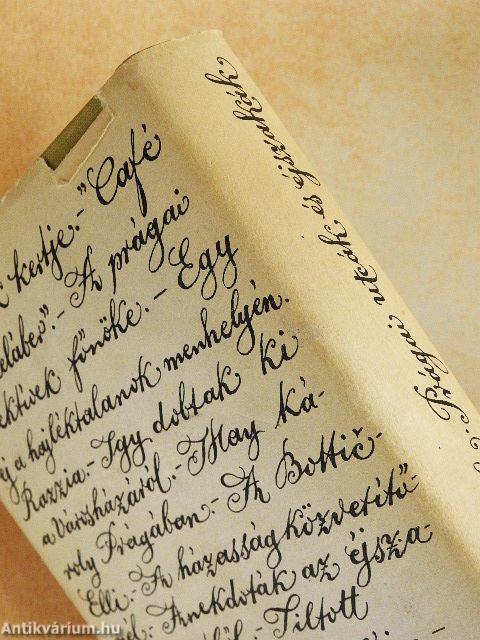 kertje.-"Café
".- Az prágai
főnöke. - Egy
éj a hajléktalanok menhelyén.
Razzia.- Igy dobtak ki
a Városházáról.- May Ká-
roly Prágában.- Az Bottič-
Elli.- Az házasságközvetítő-
Anekdoták az éjsza-
Tiltott
Prágai utcák és éjszakák
Antikvárium.hu